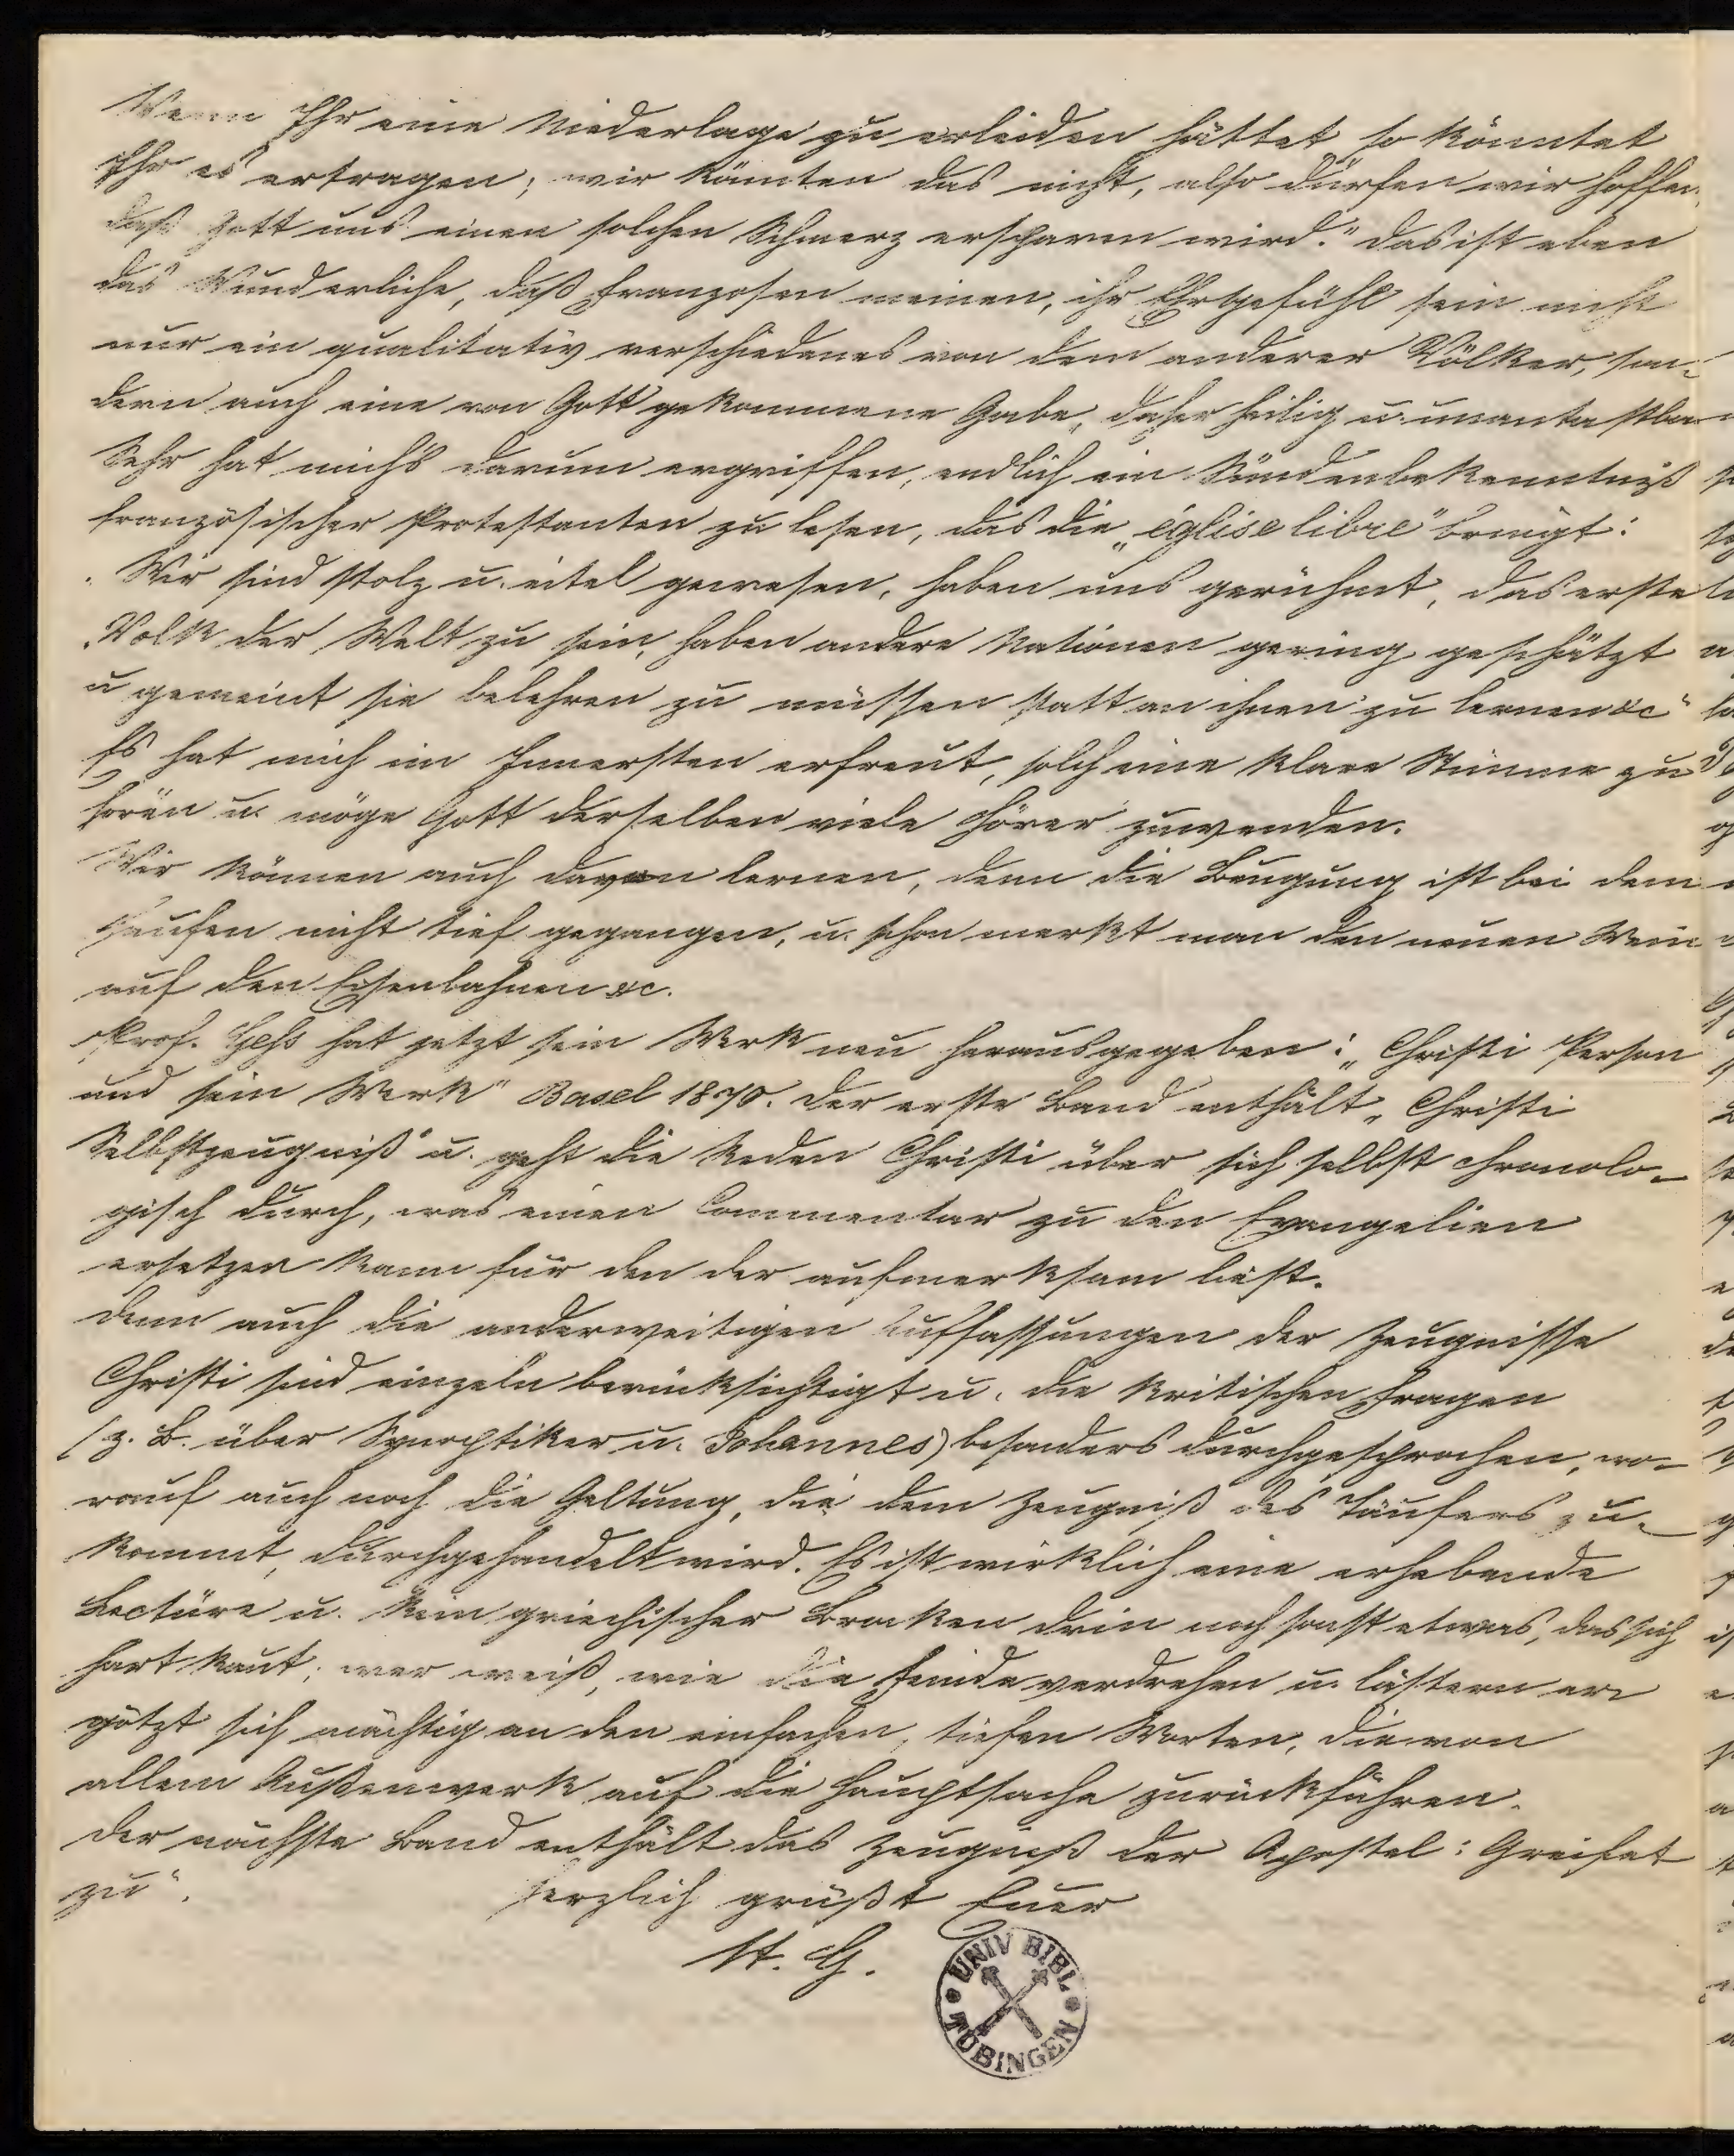 Wenn Ihr eine Niederlage zu erleiden hättet so könntet
Ihr es ertragen; wir könnten das nicht, also dürfen wir hoffen,
daß Gott uns einen solchen Schmerz ersparen wird." Das ist eben
das Wunderliche, daß Franzosen meinen, ihr Ehrgefühl sein nicht
nur ein qualitativ verschiedenes von dem anderer Völker, son-
dern auch eine von Gott gekommene Gabe, daher heilig u. unantastbar
Sehr hat mich's darum ergriffen, endlich ein Sündenbekenntniß
französischer Protestanten zu lesen, das die „église libre" bringt:
„Wir sind stolz u. eitel gewesen, haben uns gerühmt, das erste
„Volk der Welt zu sein, haben andere Nationen gering geschätzt
u gemeint sie belehren zu müssen statt an ihnen zu lernen &c"
Es hat mich im Innersten erfreut, solch eine klare Stimme zu
hören u. möge Gott derselben viele Hörer zuwenden.
Wir können auch davon lernen, denn die Beugung ist bei dem
Haufen nicht tief gegangen, u. schon merkt man den neuen Wein
auf den Eisenbahnen &c.
Prof. Geß hat jetzt sein Werk neu herausgegeben: „Christi Person
und sein Werk" Basel 1870. Der erste Band enthält „Christi
Selbstzeugniß" u. geht die Reden Christi über sich selbst chronolo-
gisch durch, was einen Commentar zu den Evangelien
ersetzen kann für den der aufmerksam liest.
Denn auch die anderweitigen Auffassungen der Zeugnisse
Christi sind einzeln berücksichtigt u. die kritischen Fragen
(z. B. über Synoptiker u. Johannes) besonders durchgesprochen, wo-
rauf auch noch die Geltung, die dem Zeugniß des Täufers zu-
kommt, durchgehandelt wird. Es ist wirklich eine erhebende
Lectüre u. kein griechischer Brocken drin noch sonst etwas, das sich
hart kaut; wer weiß, wie die Feinde verdrehen u. lästern er-
götzt sich mächtig an den einfachen, tiefen Worten, die von
allem Außenwerk auf die Hauptsache zurückführen.
Der nächste Band enthält das Zeugniß der Apostel: Greifet
zu".
Herzlich grüßt Euer
H. G.
UNIV BIBL
TÜBINGEN